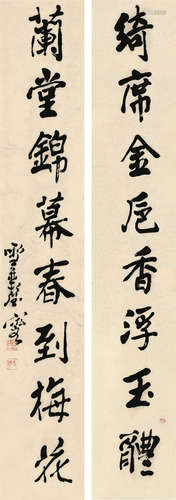 綺席金卮香浮玉醴
蘭堂錦幕春到梅花